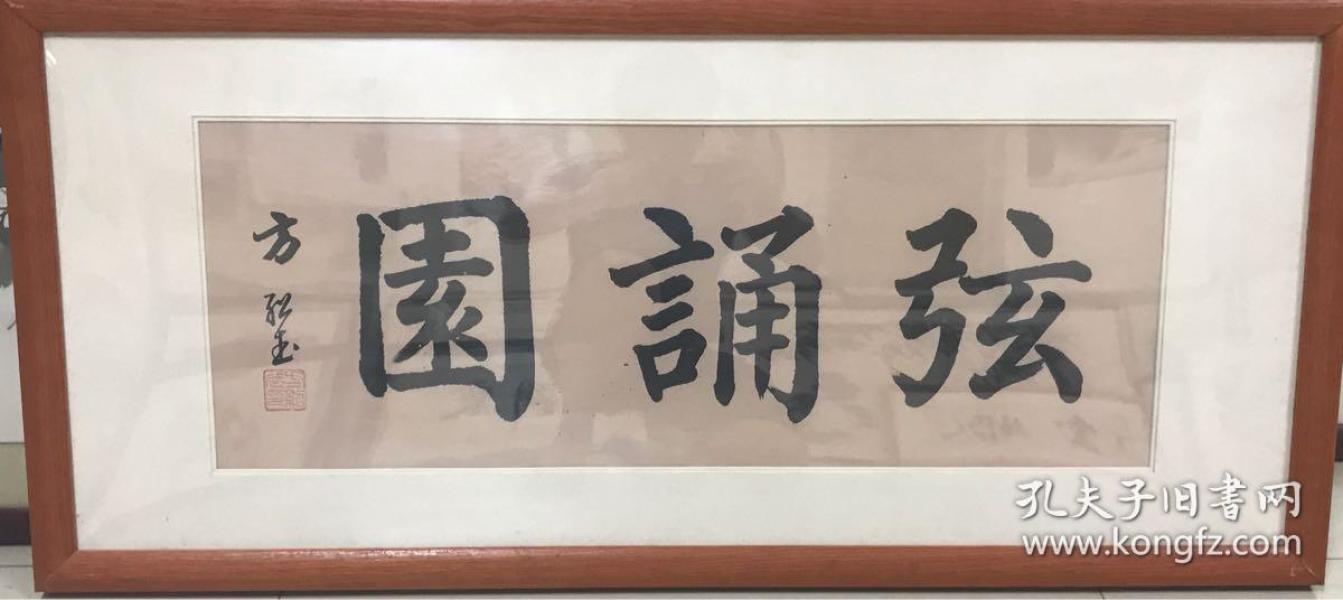 弦誦園
方
孔夫子旧書网
www.kongfz.com